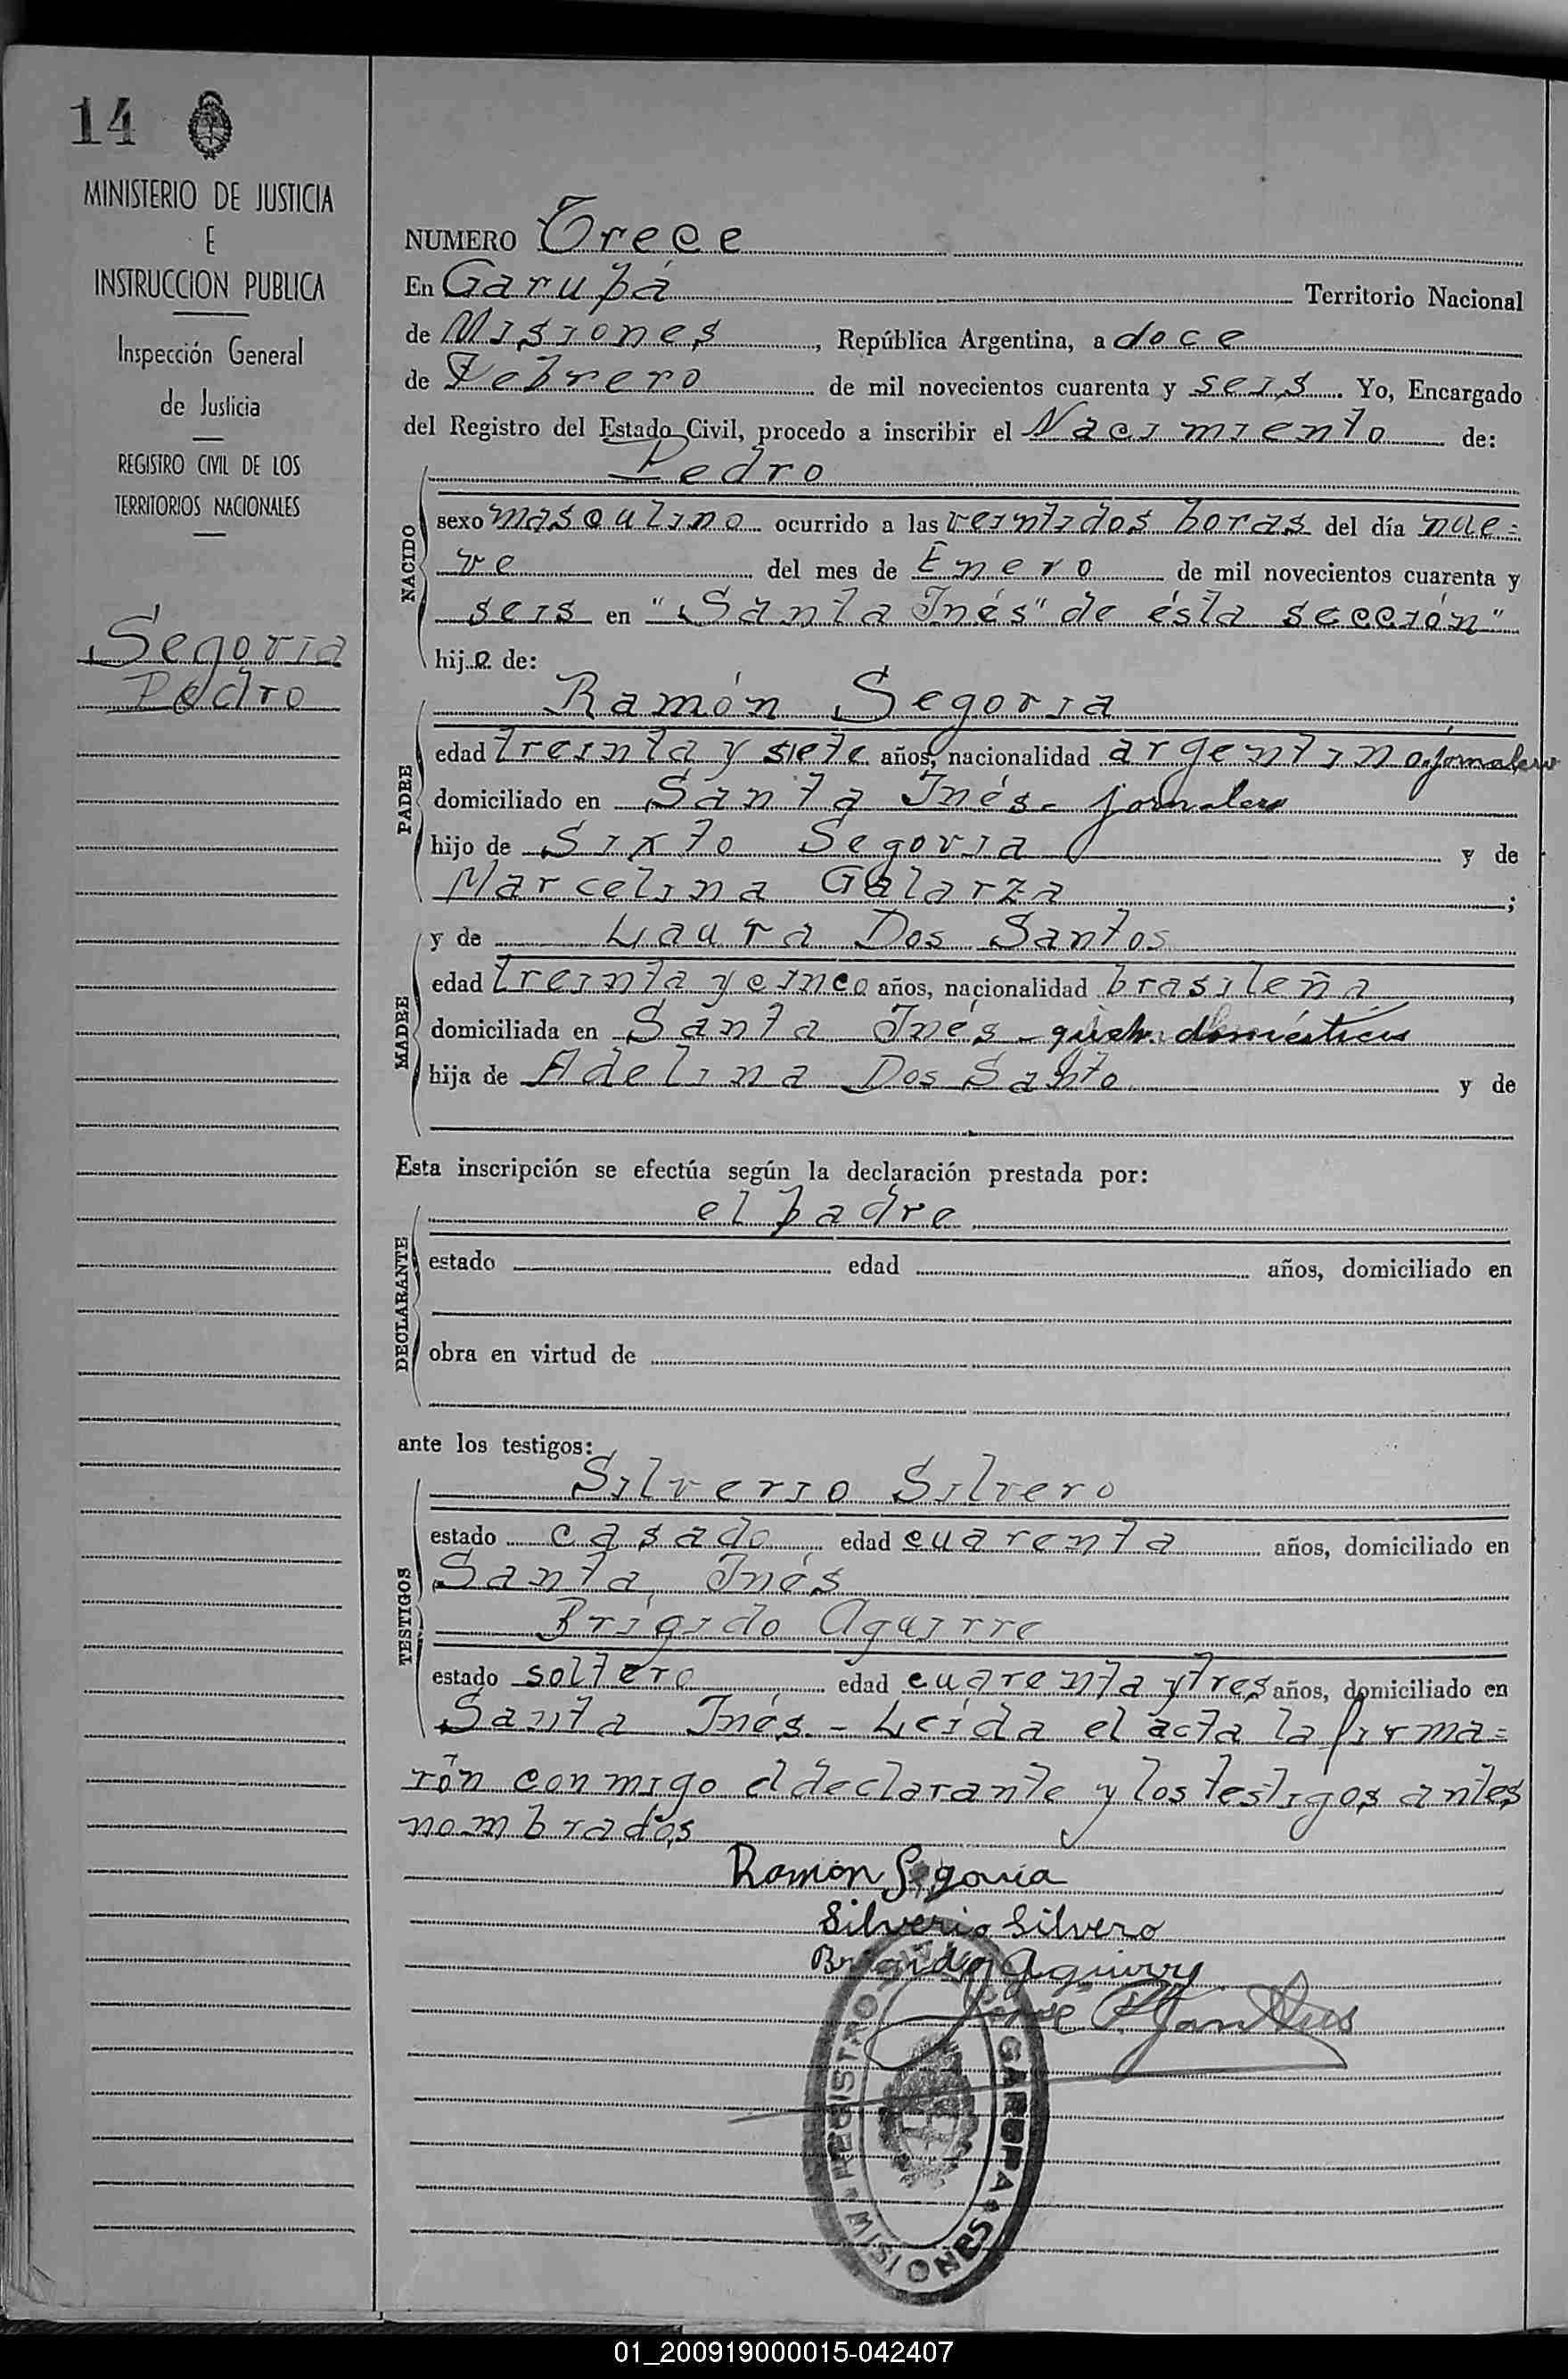 14
MINISTERIO DE JUSTICIA
E
INSTRUCCION PUBLICA
Inspección General
de Justicia
REGISTRO CIVIL DE LOS
TERRITORIOS NACIONALES
Segovia
Pedro
NUMERO Trece
En Garupá Territorio Nacional
de Misiones, República Argentina, a doce
de Febrero de mil novecientos cuarenta y seis. Yo, Encargado
del Registro del Estado Civil, procedo a inscribir el Nacimiento de:
Pedro
NACIDO
sexo masculino ocurrido a las veintidos horas del día nue=
ve del mes de Enero de mil novecientos cuarenta y
seis en "Santa Inés" de ésta sección"
hijo de:
Ramón Segovia
PADRE
edad treinta y siete años, nacionalidad argentino, jornalero
domiciliado en Santa Inés - jornalero
hijo de Sixto Segovia y de
Marcelina Galarza;
y de Laura Dos Santos
MADRE
edad treinta y cinco años, nacionalidad brasileña,
domiciliada en Santa Inés - queh. domésticos
hija de Adelina Dos Santo y de
Esta inscripción se efectúa según la declaración prestada por:
el padre
DECLARANTE
estado edad años, domiciliado en
obra en virtud de
ante los testigos:
Silverio Silvero
TESTIGOS
estado casado edad cuarenta años, domiciliado en
Santa Inés
Brigido Aguirre
estado soltero edad cuarenta y tres años, domiciliado en
Santa Inés - Leída el acta la firma=
rón conmigo el declarante y los testigos antes
nombrados
Ramón Segovia
Silverio Silvero
Brigido Aguirre
REGISTRO GARUPA MISIONES
01_200919000015-042407